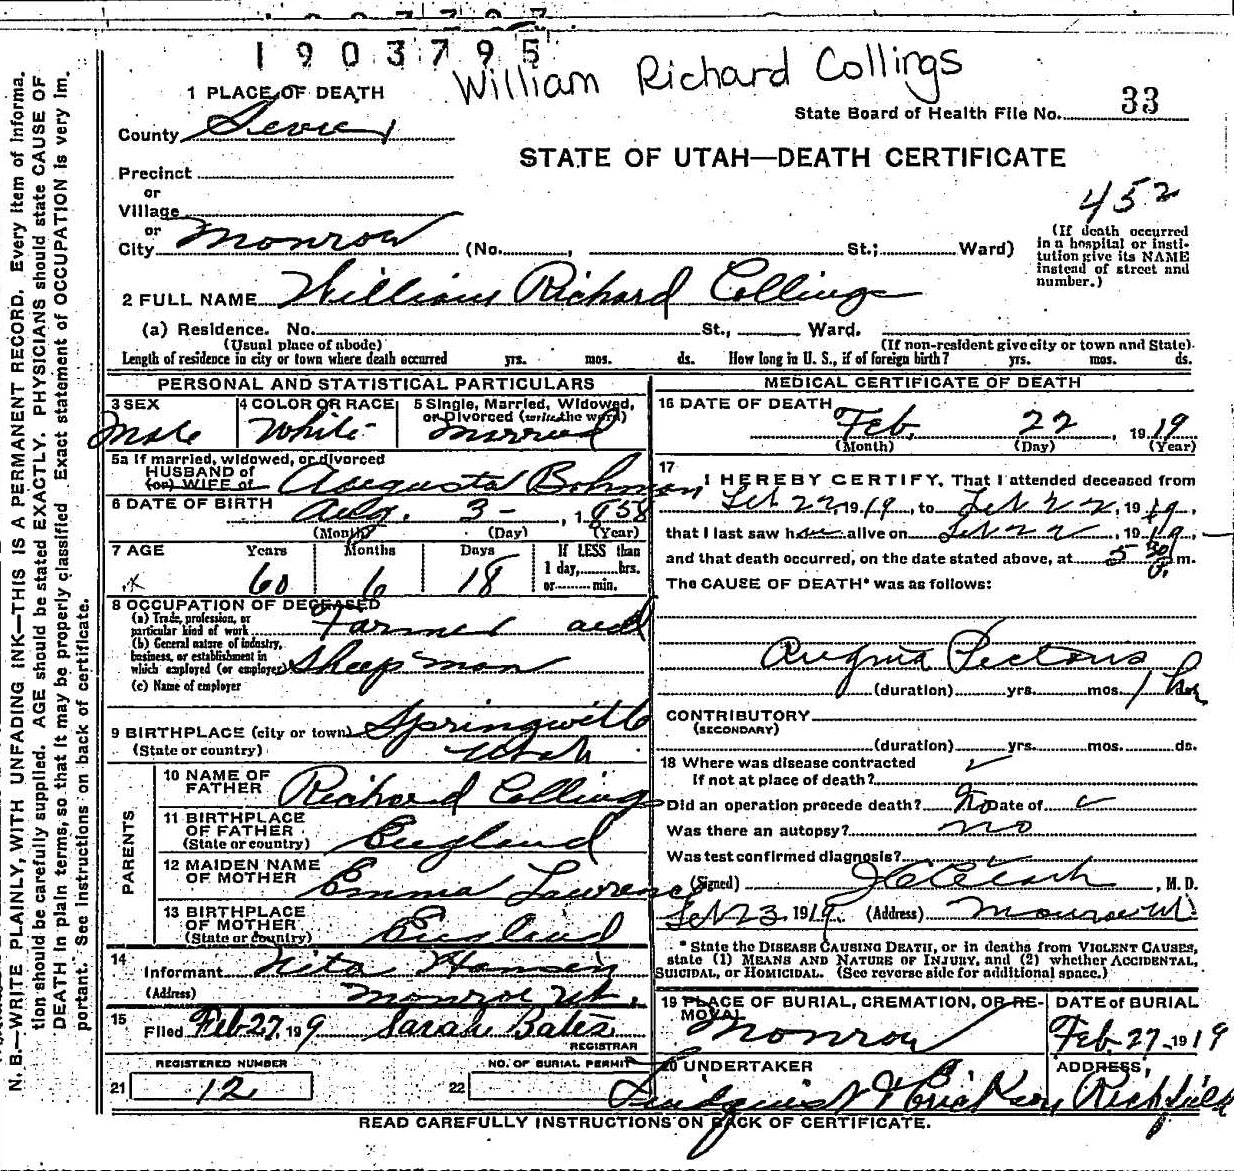 1903795
William Richard Collings
1 PLACE OF DEATH
State Board of Health File No. 33
County Sevier
STATE OF UTAH—DEATH CERTIFICATE
Precinct
or
Village
452
or
City Monroe (No. , St.; Ward)
(If death occurred in a hospital or institution give its NAME instead of street and number.)
2 FULL NAME William Richard Collings
(a) Residence. No. St., Ward.
(Usual place of abode) (If non-resident give city or town and State)
Length of residence in city or town where death occurred yrs. mos. ds. How long in U. S., if of foreign birth? yrs. mos. ds.
PERSONAL AND STATISTICAL PARTICULARS
3 SEX
Male
4 COLOR OR RACE
White
5 Single, Married, Widowed, or Divorced (write the word)
Married
5a If married, widowed, or divorced
HUSBAND of
(or) WIFE of Augusta Bohman
6 DATE OF BIRTH Aug. 3- , 1858
(Month) (Day) (Year)
7 AGE Years Months Days If LESS than
1 day, hrs.
60 6 18 or min.
8 OCCUPATION OF DECEASED
(a) Trade, profession, or particular kind of work Farmer and
(b) General nature of industry, business, or establishment in which employed (or employer) Sheep man
(c) Name of employer
9 BIRTHPLACE (city or town) Springville
(State or country) Utah
PARENTS
10 NAME OF FATHER Richard Collings
11 BIRTHPLACE OF FATHER (State or country) England
12 MAIDEN NAME OF MOTHER Emma Lawrence
13 BIRTHPLACE OF MOTHER (State or country) England
14
Informant Nita Hansen
(Address) Monroe Ut.
15
Filed Feb 27, 19 9 Sarah Bates
REGISTRAR
REGISTERED NUMBER NO. OF BURIAL PERMIT
21 12 22
MEDICAL CERTIFICATE OF DEATH
16 DATE OF DEATH
Feb. 22, 1919
(Month) (Day) (Year)
17
I HEREBY CERTIFY, That I attended deceased from
Feb 22, 1919, to Feb 22, 1919,
that I last saw him alive on Feb 22, 1919,
and that death occurred, on the date stated above, at 5 30 m.
The CAUSE OF DEATH* was as follows:
Angina Pectoris
(duration) yrs. mos. 1 hr
CONTRIBUTORY
(SECONDARY)
(duration) yrs. mos. ds.
18 Where was disease contracted
if not at place of death?
Did an operation precede death? No Date of
Was there an autopsy? no
Was test confirmed diagnosis?
(Signed) , M. D.
Feb 23, 1919. (Address) Monroe Ut.
* State the DISEASE CAUSING DEATH, or in deaths from VIOLENT CAUSES,
state (1) MEANS AND NATURE OF INJURY, and (2) whether ACCIDENTAL,
SUICIDAL, or HOMICIDAL. (See reverse side for additional space.)
19 PLACE OF BURIAL, CREMATION, OR REMOVAL
Monroe
DATE of BURIAL
Feb. 27, 1919
20 UNDERTAKER
ADDRESS,
Richfield
READ CAREFULLY INSTRUCTIONS ON BACK OF CERTIFICATE.
N. B.—WRITE PLAINLY, WITH UNFADING INK—THIS IS A PERMANENT RECORD. Every item of informa-
tion should be carefully supplied. AGE should be stated EXACTLY. PHYSICIANS should state CAUSE OF
DEATH in plain terms, so that it may be properly classified. Exact statement of OCCUPATION is very im-
portant. See instructions on back of certificate.